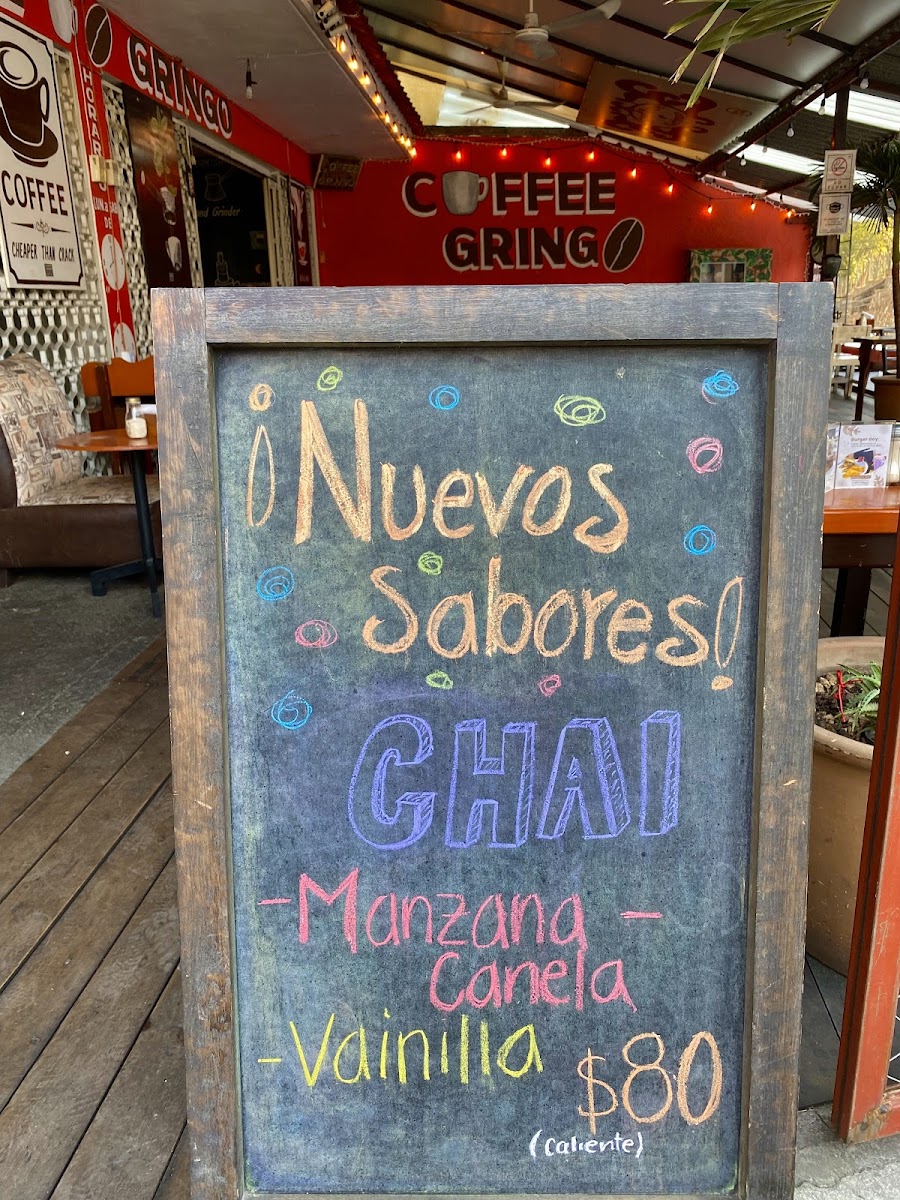 GRINGO
COFFEE
CHEAPER THAN CRACK
COFFEE
GRINGO
¡Nuevos
Sabores!
CHAI
-Manzana -
Canela
-Vainilla
$80
(caliente)